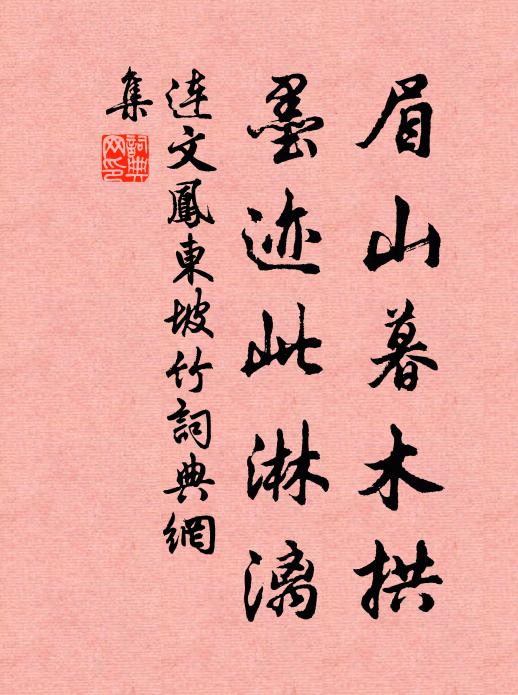 眉山暮木拱
墨迹此淋漓
连文鳳東坡竹詞典網
集
詞典
网印